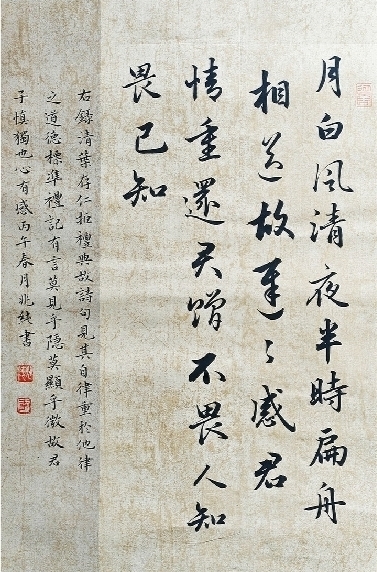 月白风清夜半時扁舟
相送故遲々感君
情重還君贈不畏人知
畏己知
右錄清葉存仁拒禮典故詩句見其自律重於他律
之道德標準禮記有言莫見乎隱莫顯乎微故君
子慎獨也心有感丙午春月兆書